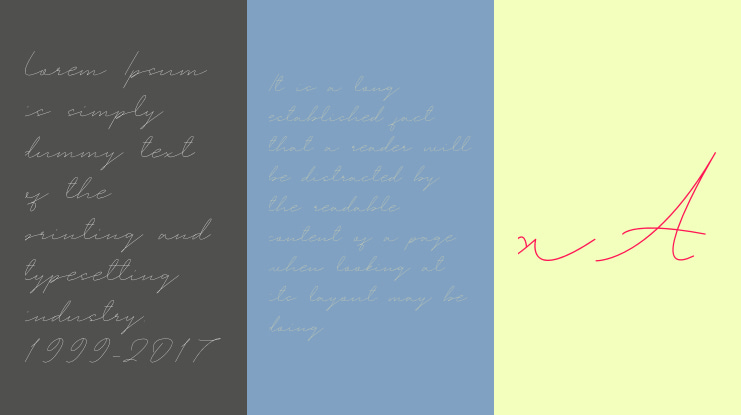 Lorem Ipsum
is simply
dummy text
of the
printing and
typesetting
industry.
1999-2017
It is a long
established fact
that a reader will
be distracted by
the readable
content of a page
when looking at
its layout may be
doing
n A